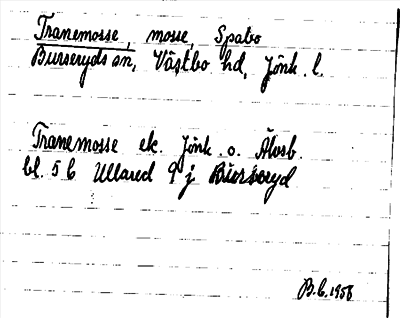 Tranemosse, mosse, Spabo
Burseryds sn, Västbo hd, Jönk. l.
Tranemosse ek. Jönk. o. Älvsb.
bl. 5 b Ullared 9 j Burseryd
B.C. 1956